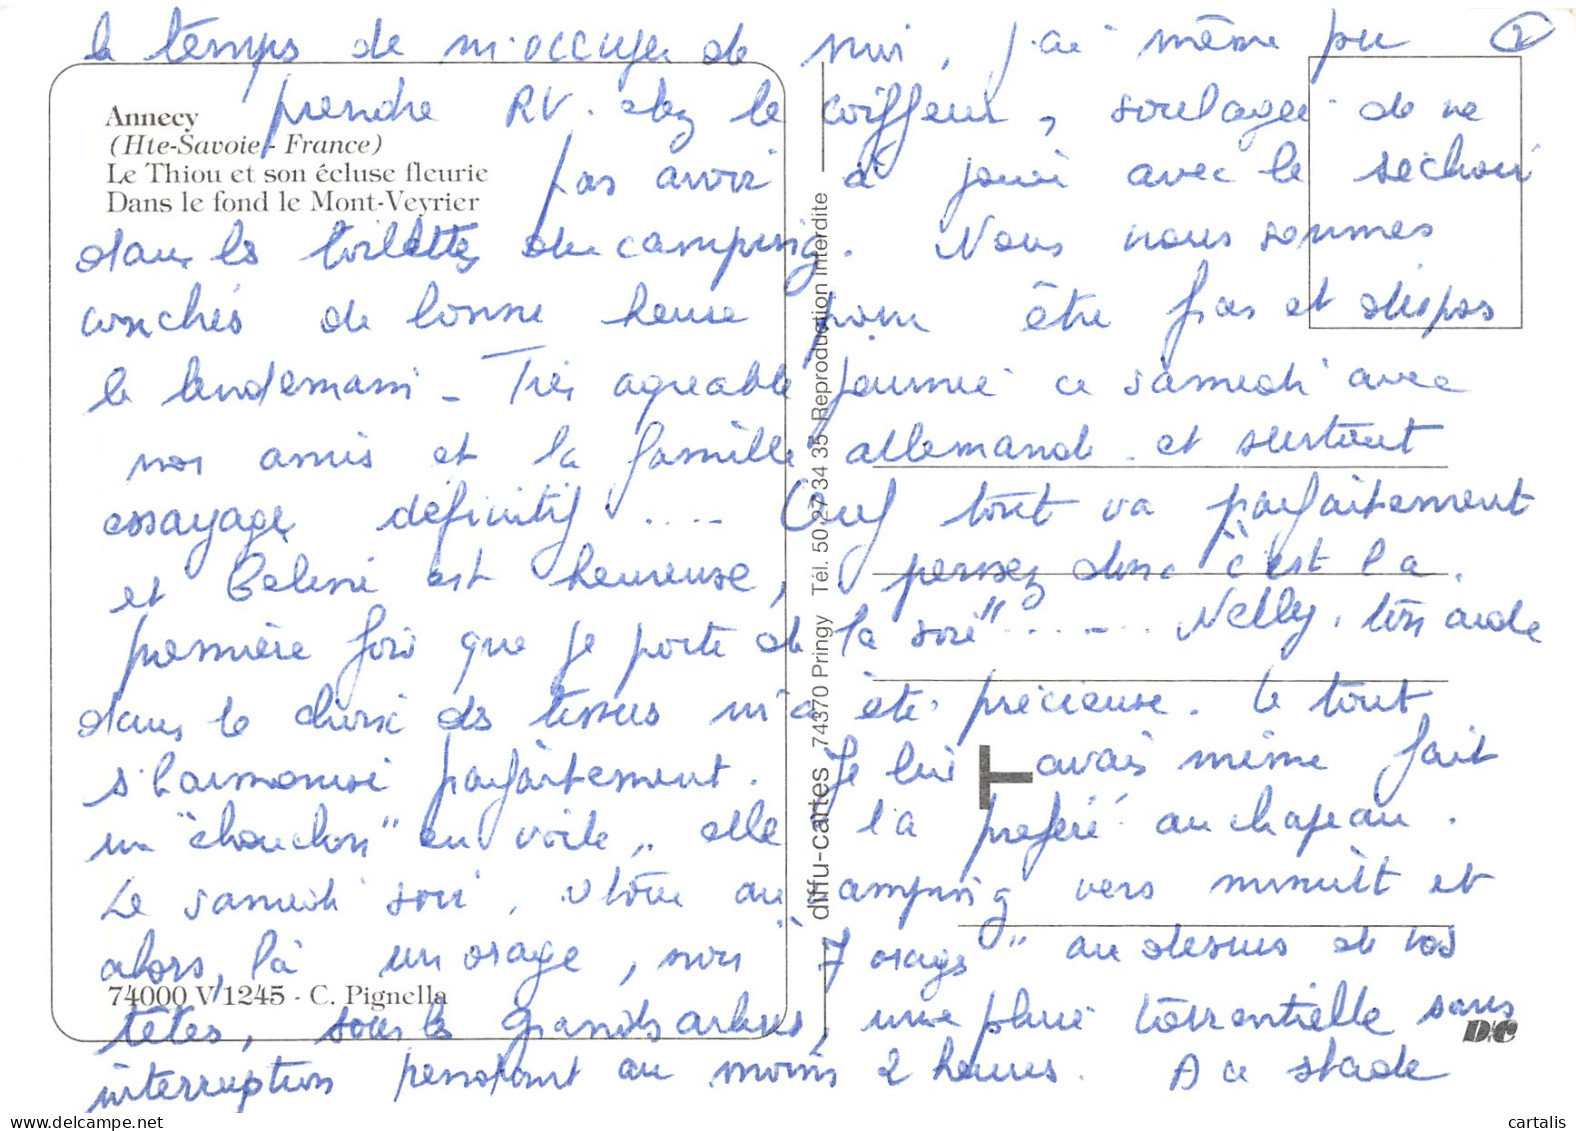 le temps de m'occuper de moi, j'ai même pu 2
prendre RV. chez le coiffeur, soulagée de ne
pas avoir à jouer avec le séchoir
dans les toilettes du camping. Nous nous sommes
couchés de bonne heure pour être frais et dispos
le lendemain - Très agréable journée ce samedi avec
nos amis et la famille allemande et surtout
essayage définitif .... Ouf tout va parfaitement
et Célène est heureuse, pensez donc "c'est la
première fois que je porte de la soie" ..... Nelly, ton aide
dans le choix des tissus m'a été précieuse. Le tout
s'harmonise parfaitement. Je lui avais même fait
un "chouchou" en voile, elle l'a préféré au chapeau.
Le samedi soir, retour au camping vers minuit et
alors, là un orage, non 7 orages" au dessus de nos
têtes, sous les grands arbres, une pluie torrentielle sans
interruption pendant au moins 2 heures. A ce stade
Annecy
(Hte-Savoie - France)
Le Thiou et son écluse fleurie
Dans le fond le Mont-Veyrier
74000 V 1245 - C. Pignella
diffu-cartes 74370 Pringy Tél. 50 27 34 35 Reproduction interdite
D/C
cartalis
www.delcampe.net